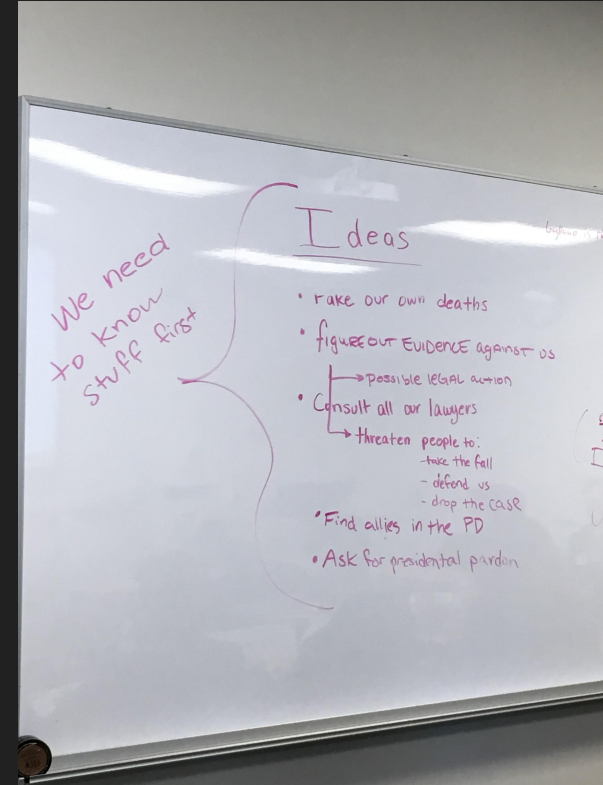 We need
to know
stuff first
Ideas
• Fake our own deaths
• figure out EVIDENCE against us
possible legal action
• Consult all our lawyers
threaten people to:
- take the fall
- defend us
- drop the case
• Find allies in the PD
• Ask for presidental pardon